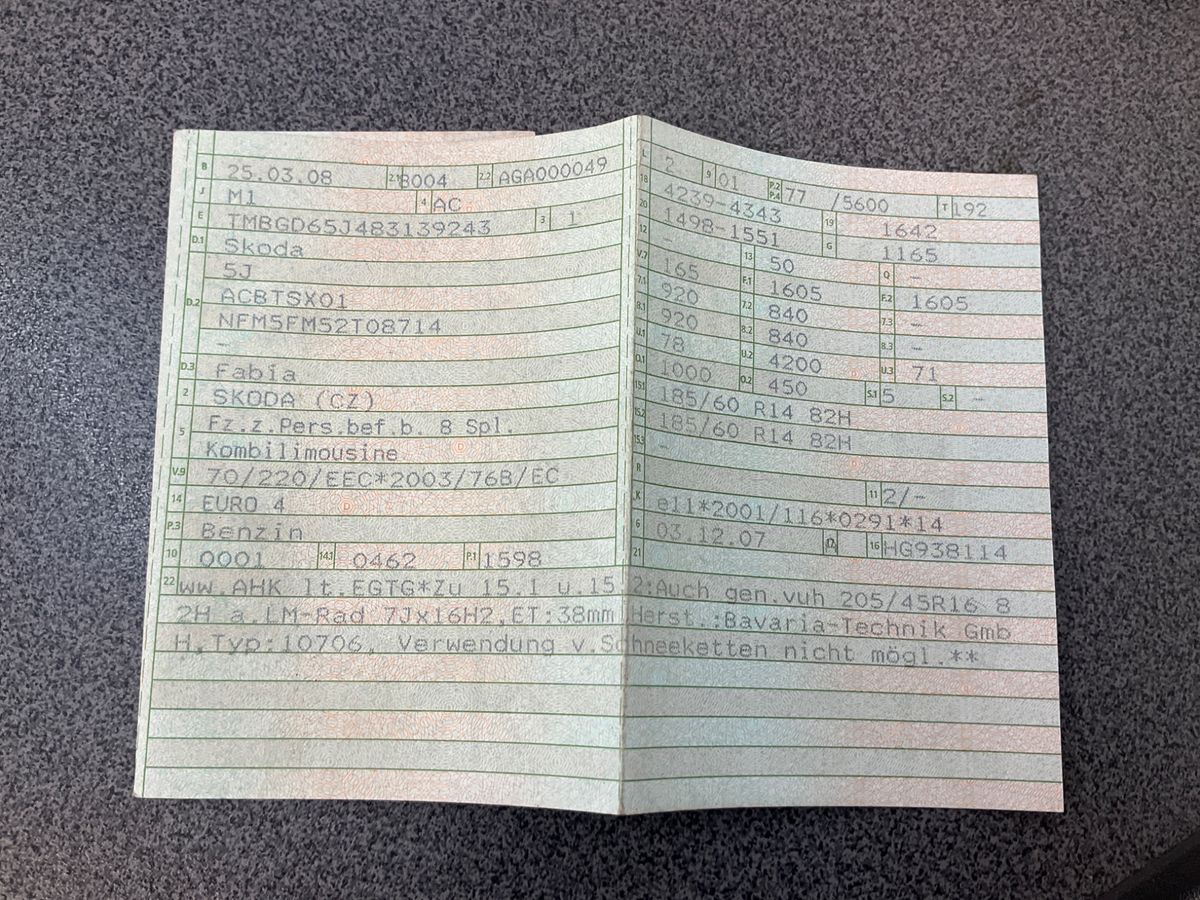 B 25.03.08 2.1 8004 2.2 AGA000049
J M1 4 AC
E TMBGD65J483139243 3 1
D.1 Skoda
D.2 5J
ACBTSX01
NFM5FM52T08714
–
D.3 Fabia
2 SKODA (CZ)
5 Fz.z.Pers.bef.b. 8 Spl.
Kombilimousine
V.9 70/220/EEC*2003/76B/EC
14 EURO 4
P.3 Benzin
10 0001 14.1 0462 P.1 1598
L 2 9 01 P.2 P.4 77 /5600 T 192
18 4239-4343 19 1642
20 1498-1551 G 1165
12 – 13 50 Q –
V.7 165 F.1 1605 F.2 1605
7.1 920 7.2 840 7.3 –
8.1 920 8.2 840 8.3 –
U.1 78 U.2 4200 U.3 71
O.1 1000 O.2 450 S.1 5 S.2 –
15.1 185/60 R14 82H
15.2 185/60 R14 82H
15.3 –
R 11 2/–
K e11*2001/116*0291*14
6 03.12.07 16 HG938114
21
22 ww.AHK lt.EGTG*Zu 15.1 u.15.2:Auch gen.vuh 205/45R16 8
2H a.LM-Rad 7Jx16H2,ET:38mm Herst.:Bavaria-Technik Gmb
H,Typ:10706, Verwendung v.Schneeketten nicht mögl.**